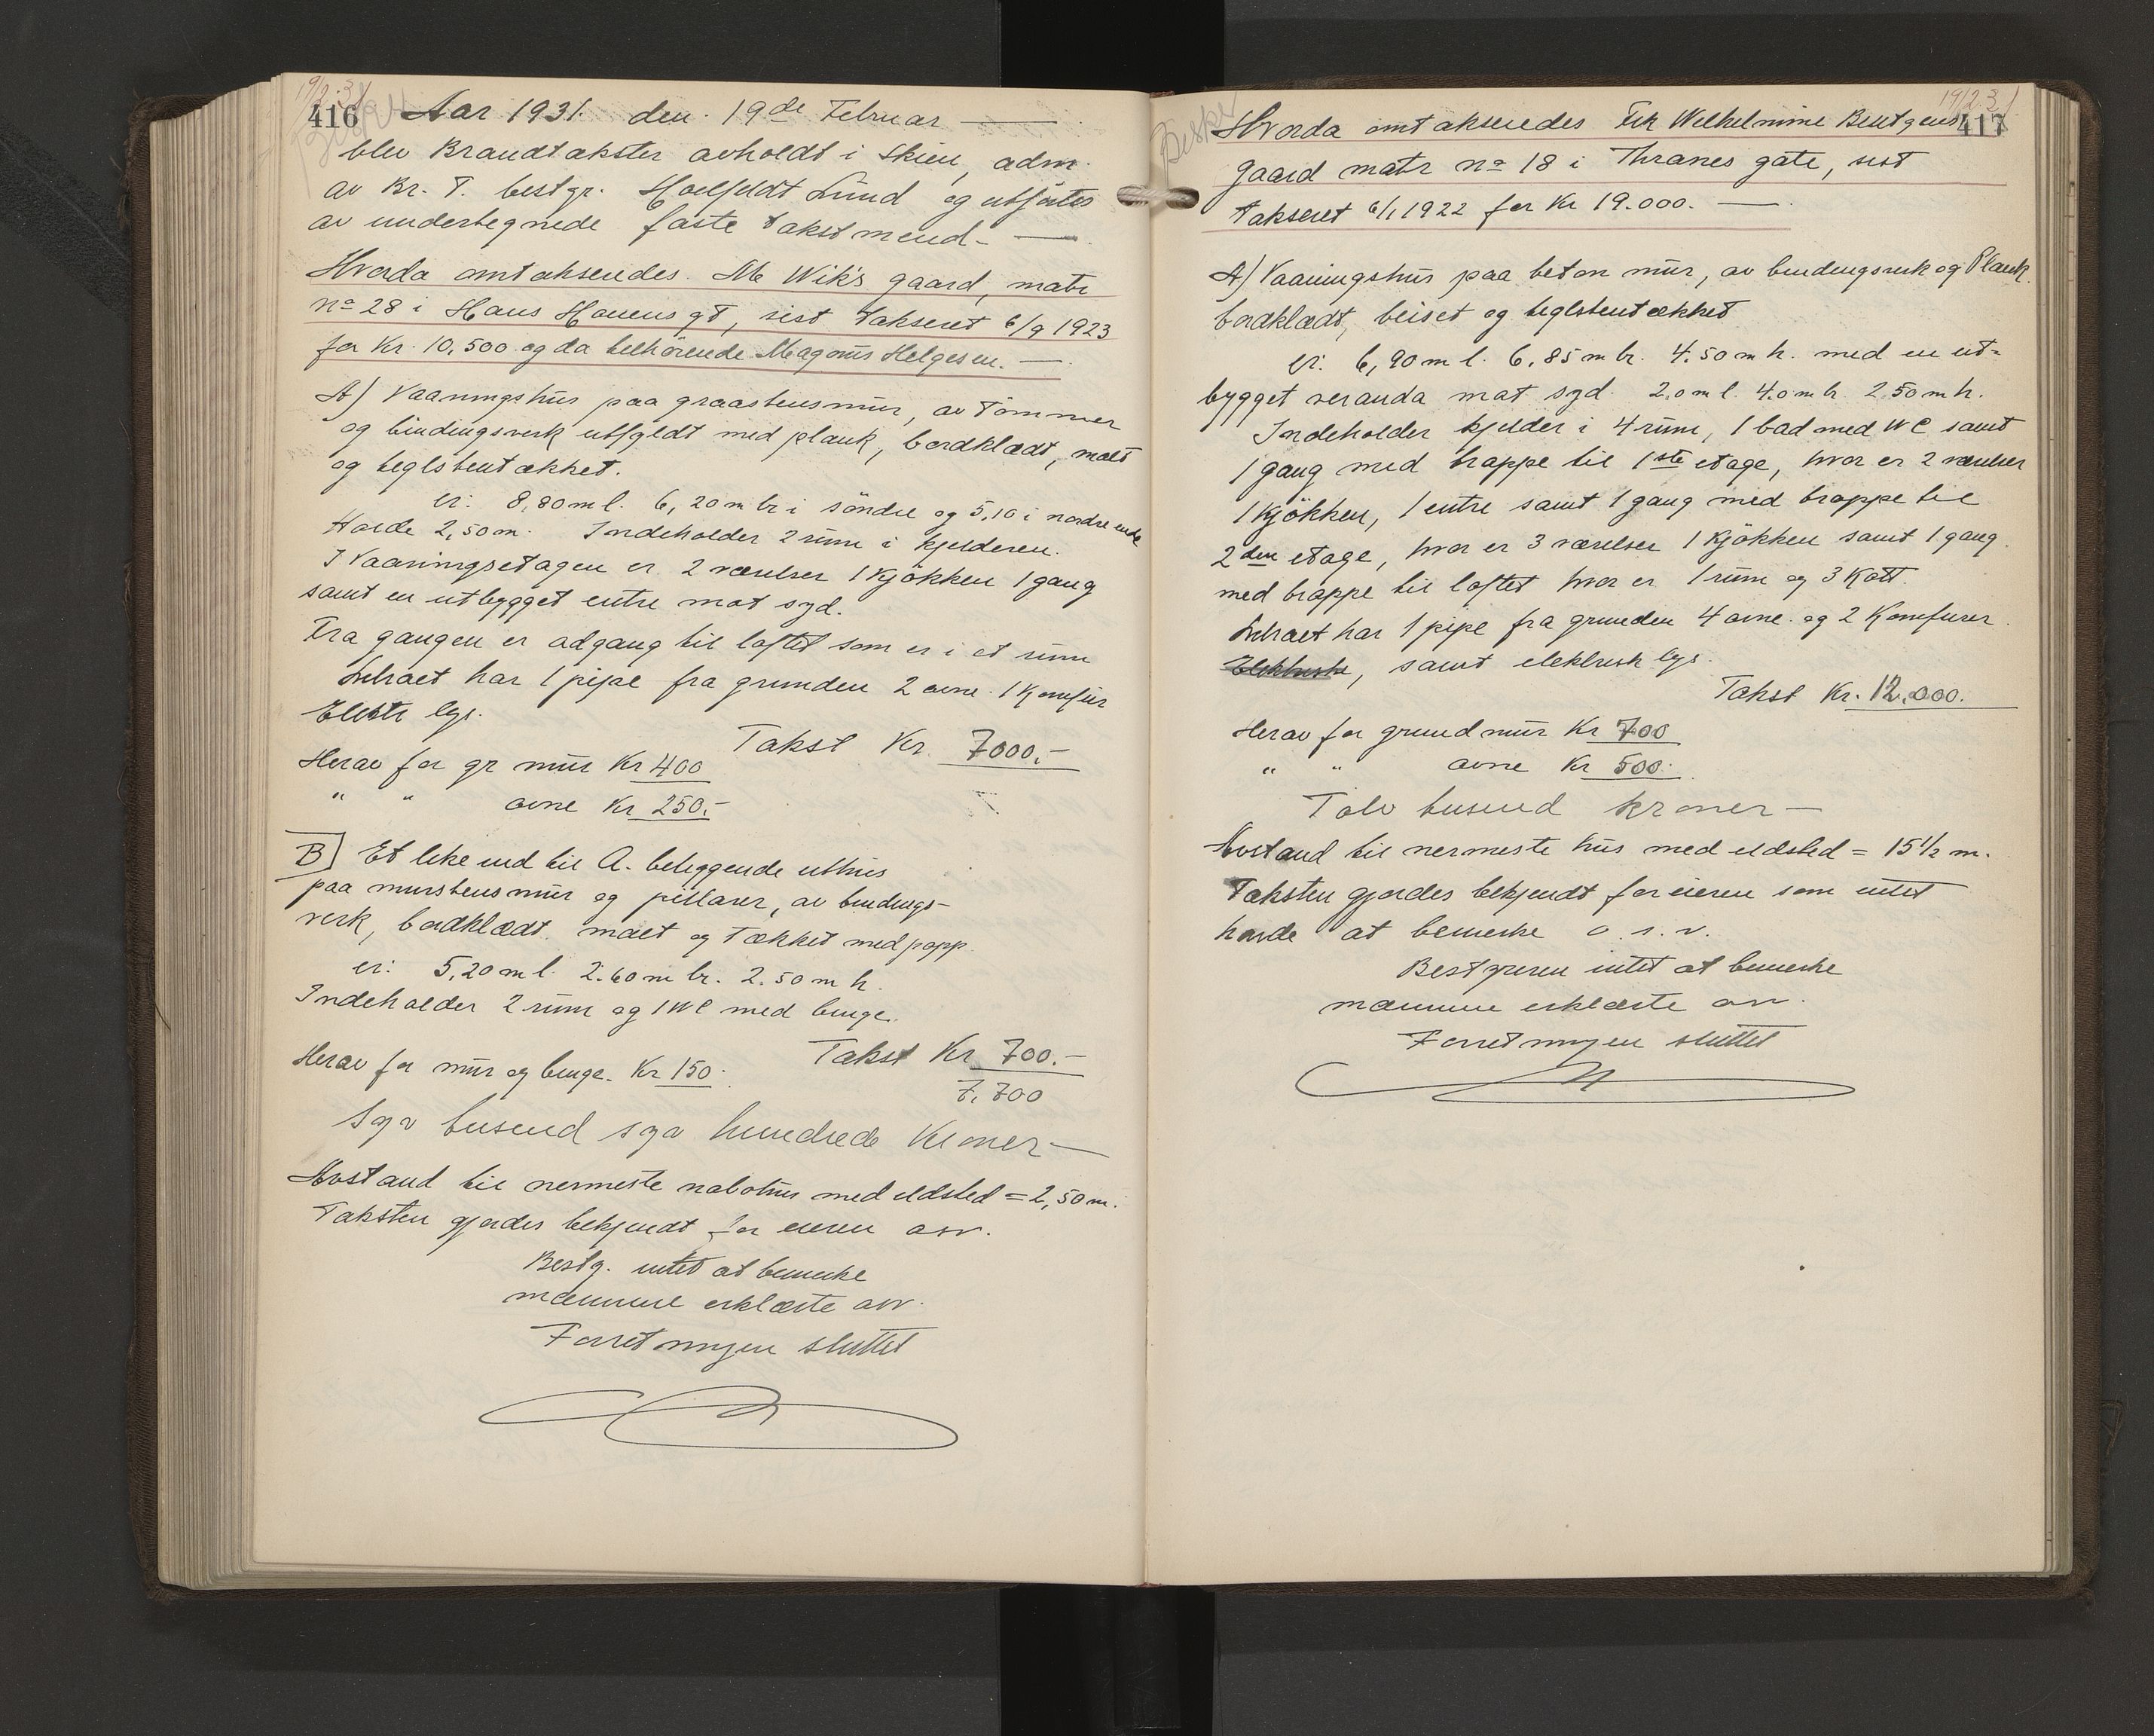 19/2.31
416 Aar 1931. den. 19de Februar
blev Brandtakster avholdt i Skien, adm.
av Br. T. bestyr. Hoelfeldt Lund og utførtes
av undertegnede faste takstmend.
Hvorda omtakseredes M Wik's gaard, matr
No 28 i Hans Houens gt, sist takseret 6/9 1923
for Kr. 10,500 og da tilhörende Magnus Helgesen.
A) Vaaningshus paa graastensmur, av Tömmer
og bindingsverk utfyldt med plank, bordklædt, malt
og teglstentækket.
er: 8,80 m l. 6,20 m br i söndre og 5,10 i nordre ende
Høide 2,50 m. Indeholder 2 rum i kjelderen.
I Vaaningsetagen er 2 værelser 1 Kjökken 1 gang
samt en utbygget entre mot syd.
Fra gangen er adgang til loftet som er i et rum
Indraet har 1 pipe fra grunden 2 ovne. 1 Komfur
Elektr lys.
Takst Kr. 7000.-
Herav for gr mur Kr 400
" " ovne Kr 250.-
B) Et like ved til A. beliggende uthus
paa murstensmur og pillarer, av bindings-
verk, bordklædt. malt og Tækket med papp
er: 5,20 m l. 2.60 m br. 2.50 m h.
Indeholder 2 rum og 1 WC med binge.
Takst Kr 700.-
Herav for mur og binge. Kr 150.-
7,700
Syv tusend syv hundrede Kroner-
Avstand til nermeste nabohus med ildsted = 2,50 m.
Taksten gjordes bekjendt for eieren osv.
Besty. intet at bemerke
mænnene erklærte osv.
Forretningen sluttet
19/2 31
417
Hvorda omtakseredes Frk Wilhelmine Bentzens
gaard matr No 18 i Thranes gate, sist
takseret 6/1 1922 for Kr 19.000.
A) Vaaningshus paa beton mur, av bindingsverk og Plank.
bordklædt, beiset og teglstentækket
er: 6,90 m l. 6,85 m br. 4.50 m h. med en ut-
bygget veranda mot syd. 2.0 m l. 4.0 m br 2.50 m h.
Indeholder kjelder i 4 rum, 1 bad med WC samt
1 gang med trappe til 1ste etage, hvor er 2 værelser
1 Kjökken, 1 entre samt 1 gang med trappe til
2den etage, hvor er 3 værelser 1 Kjökken samt 1 gang.
med trappe til loftet hvor er 1 rum og 3 Kott.
Indraet har 1 pipe fra grunden 4 ovne. og 2 Komfurer.
Elektriske, samt elektrisk lys.
Takst Kr. 12.000.
Herav for grundmur Kr 700
" " ovne Kr 500.
Tolv tusend kroner-
Avstand til nermeste hus med ildsted = 15 1/2 m.
Taksten gjordes bekjendt for eieren som intet
havde at bemerke o. s. v.
Bestyreren intet at bemerke
mænnene erklærte osv.
Forretningen sluttet